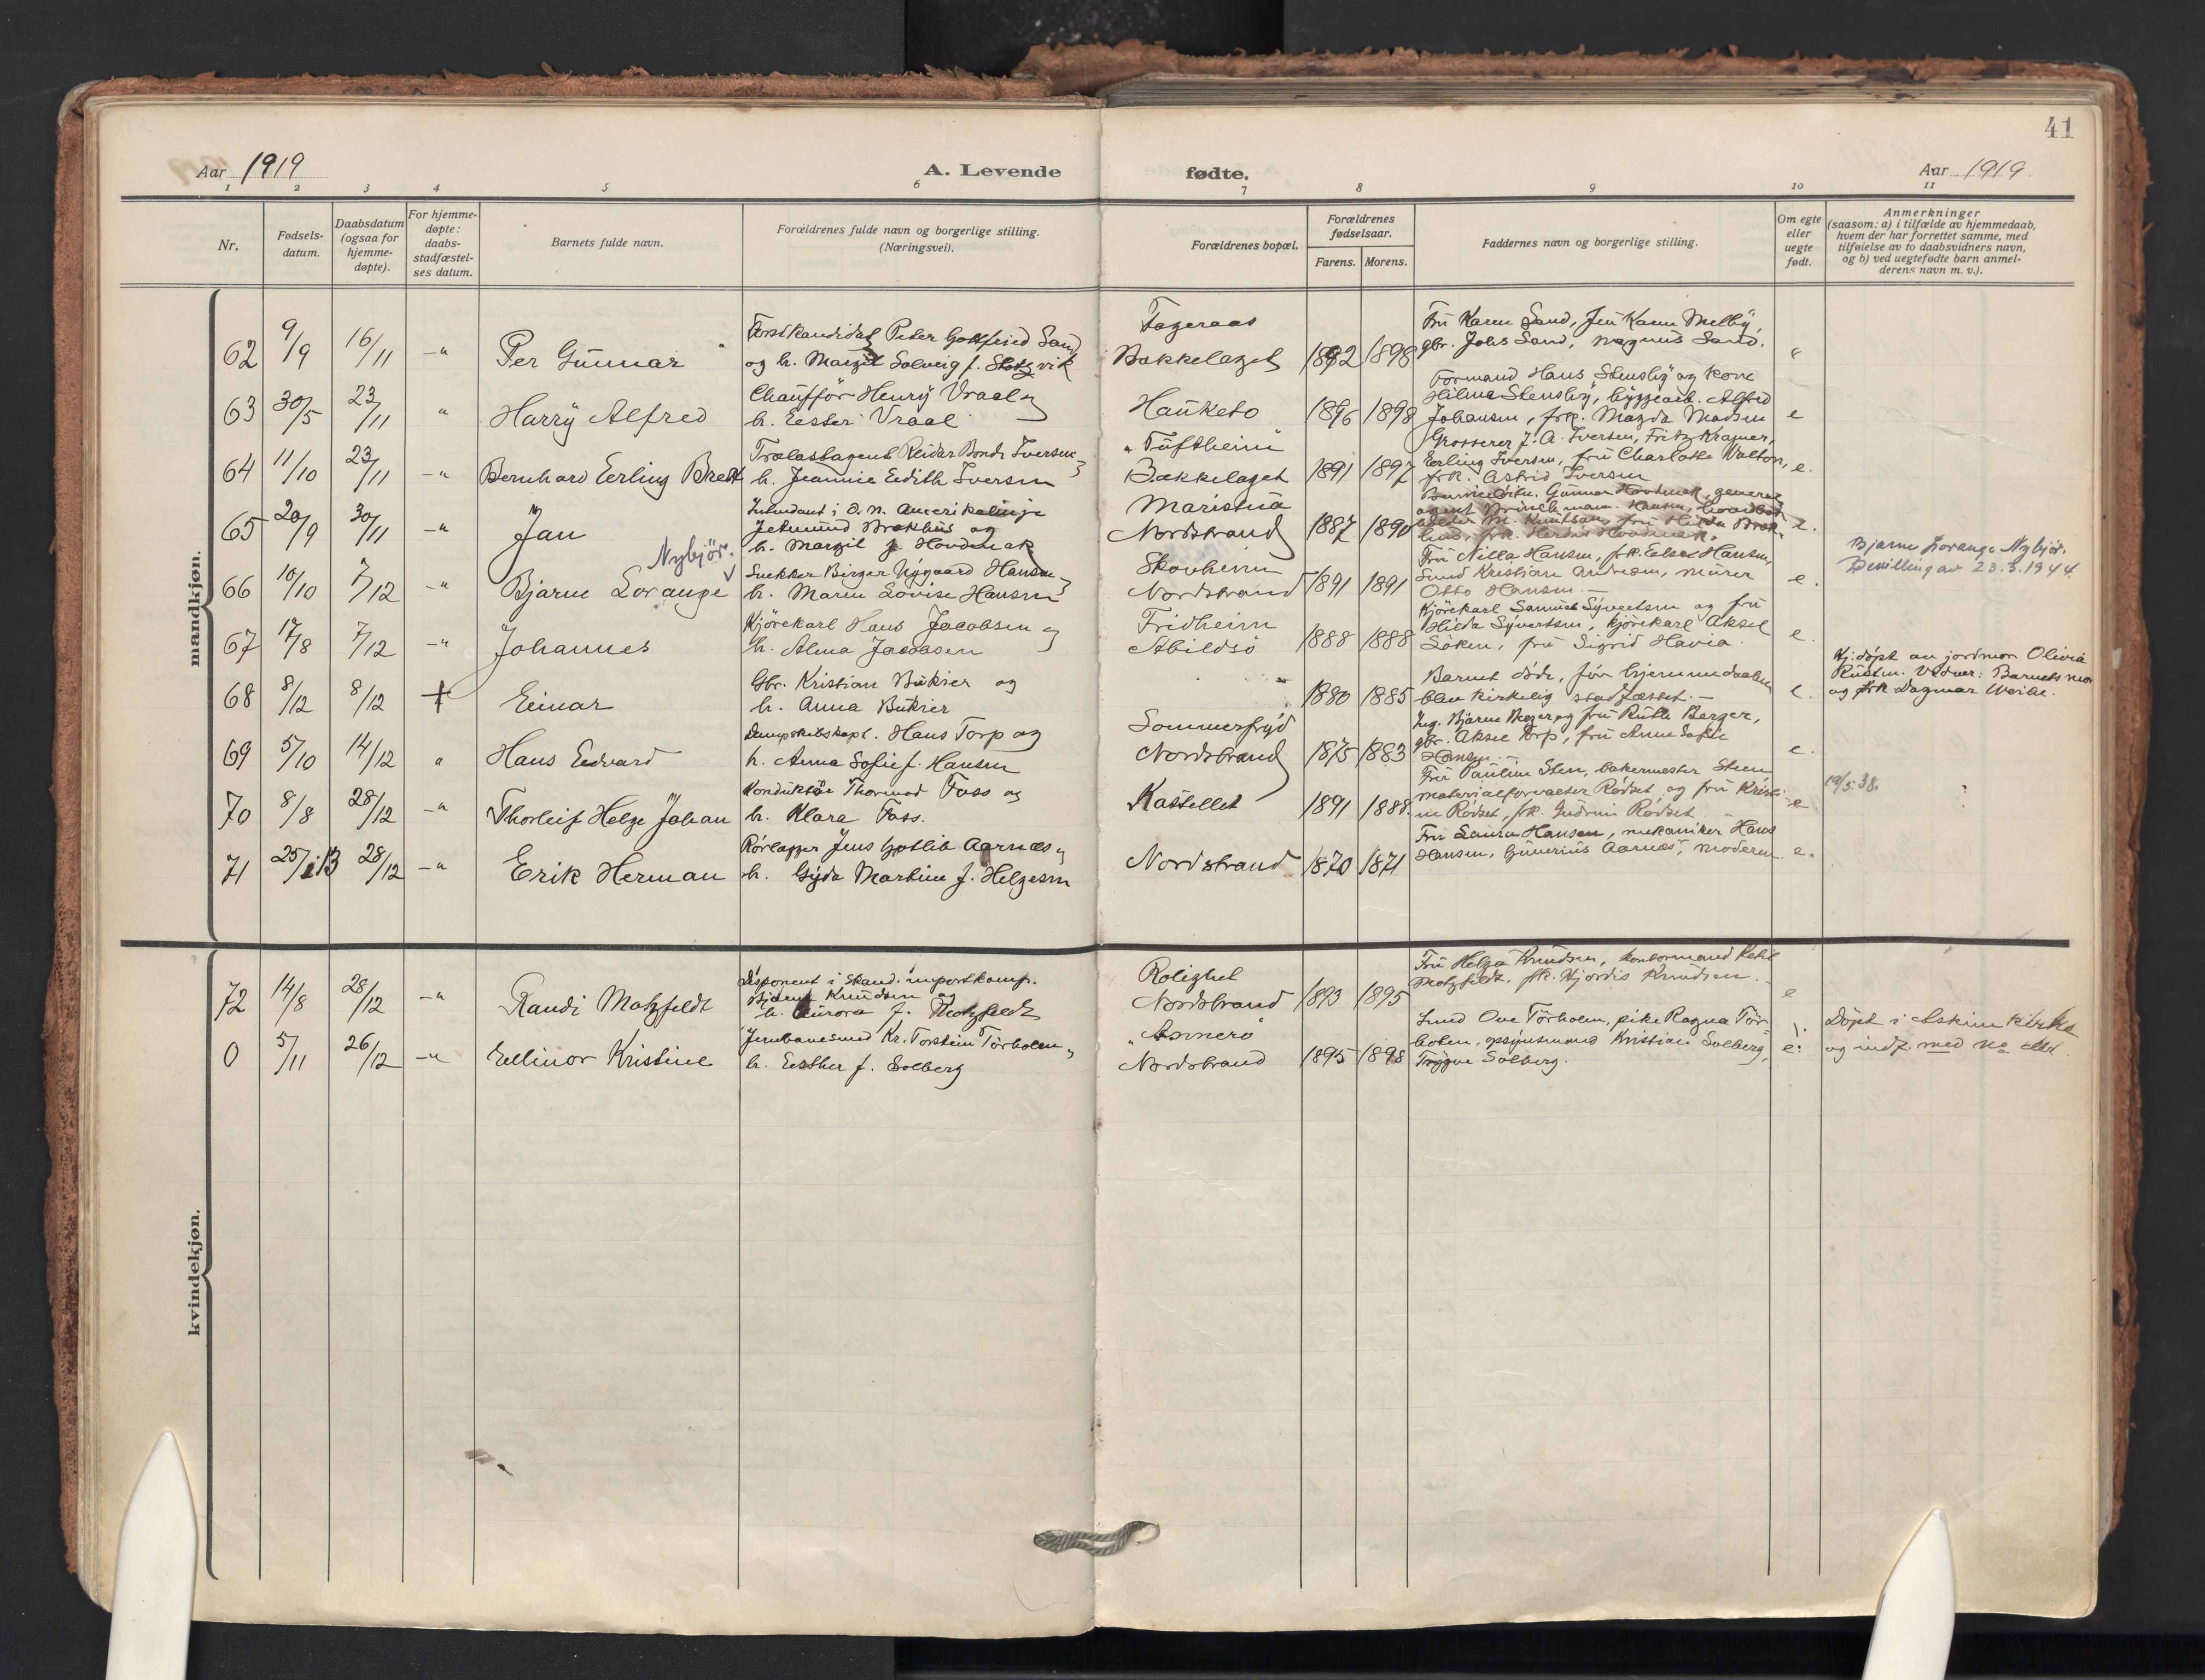 41
Aar 1919
A. Levende fødte.
Aar 1919
1 2 3 4 5 6 7 8 9 10 11
Nr.
Fødsels-
datum.
Daabsdatum
(ogsaa for
hjemme-
døpte).
For hjemme-
døpte:
daabs-
stadfæstel-
ses datum.
Barnets fulde navn.
Forældrenes fulde navn og borgerlige stilling.
(Næringsvei).
Forældrenes bopæl.
Forældrenes
fødselsaar.
Farens. Morens.
Faddernes navn og borgerlige stilling.
Om egte
eller
uegte
født.
Anmerkninger
(saasom: a) i tilfælde av hjemmedaab,
hvem der har forrettet samme, med
tilføielse av to daabsvidners navn,
og b) ved uegtefødte barn anmel-
derens navn m. v.).
mandkjøn.
62 9/9 16/11 -"- Per Gunnar
Forstkandidat Peter Gottfried Sand
og h. Margit Solveig f.
Fageraas
Bækkelaget 1892 1898
Fru Karen Sand, Karen Melby,
gbr. Johs Sand, Magnus Sand. e
63 30/5 23/11 " Harry Alfred
Chauffør Henry Vraal og
h. Ester Vraal
Hauketo 1896 1898
Formand Hans Stensby og kone
Hilma Stensby, byggearb. Alfred
Johansen, frk. Magda Madsen e
64 11/10 23/11 -"- Bernhard Erling Brett
Trælastagent Reidar Bonde Iversen
h. Jeannie Edith Iversen
"Tuftheim"
Bækkelaget 1891 1897
Grosserer J. A. Iversen, Fritz Kramer,
Erling Iversen, fru Charlotte Walton,
frk. Astrid Iversen e.
65 20/9 30/11 -"- Jan
Intendant i d. n. Amerikalinje
Jetmund Brekhus og
h. Margit f. Hovdenak
Maristua
Nordstrand 1887 1890
Gunnar Hovdenak, general
agent Brinchmann Hansen,
M. Knutsen, fru Hilda Brek-
hus, frk. Herdis Hovdenak. e.
66 10/10 7/12 -"- Bjarne Lorange Nybjör.
Snekker Birger Nygaard Hansen
h. Maren Lovise Hansen
Skovheim
Nordstrand 1891 1891
Fru Nilla Hansen, frk. Else Hansen,
Smed Kristian Andresen, murer
Otto Hansen. e.
Bjarne Lorange Nybjör.
Bevilling av 23.3.1944.
67 17/8 7/12 -"- Johannes
Kjörekarl Hans Jacobsen og
h. Alma Jacobsen
Fridheim
Abildsö 1888 1888
Kjörekarl Samuel Syvertsen og fru
Hilda Syvertsen, kjörekarl Aksel
Söken, fru Sigrid Havia. e.
68 8/12 8/12 + Einar
Gbr. Kristian Bukier og
h. Anna Bukier
1880 1885
Barnet döde, för hjemmedaaben
blev kirkelig stadfæstet. e.
Hj.döpt av jordmor Olivia
Rustu. Vidner: Barnets mor
og frk Dagmar Weibe.
69 5/10 14/12 " Hans Edvard
Dampskibskapt. Hans Torp og
h. Anna Sofie f. Hansen
Sommerfryd
Nordstrand 1875 1883
Ing. Bjarne Berger og fru Ruth Berger,
gbr. Aksel Torp, fru Anne Sofie
Hansen. e.
70 8/8 28/12 -"- Thorleif Helge Johan
Konduktör Thormod Foss og
h. Klara Foss.
Kastellet 1891 1888.
Fru Pauline Sten, bakermester Steen
materialforvalter Rödset og fru Kristi-
ne Rödset, frk. Gudrun Rödset e
19/5.38.
71 25/1 13 28/12 -"- Erik Herman
Rörlægger Jens Gotlib Aarnæs og
h. Gyda Martine f. Helgesen
Nordstrand 1870 1871
Fru Laura Hansen, mekaniker Hans
Hansen, Gunerius Aarnæs, moderen. e.
kvindekjøn.
72 14/8 28/12 -"- Randi Motzfeldt
Disponent i Skand. importkomp.
Knudsen og
h. Aurora f. Motzfeldt
Rolighet
Nordstrand 1893 1895
Fru Helga Knudsen, kontormand Ketil
Motzfeldt, frk. Hjördis Knudsen. e
0 5/11 26/12 -"- Ellinor Kristine
Jernbanesmed Kr. Torstein Törholen
h. Esther f. Solberg
"Annerö"
Nordstrand 1895 1898
Smed Ove Törholen, pike Ragna Tör-
holen, opsynsmand Kristian Solberg,
Trygve Solberg. e.
Döpt i Askim kirke
og indf. med no der.